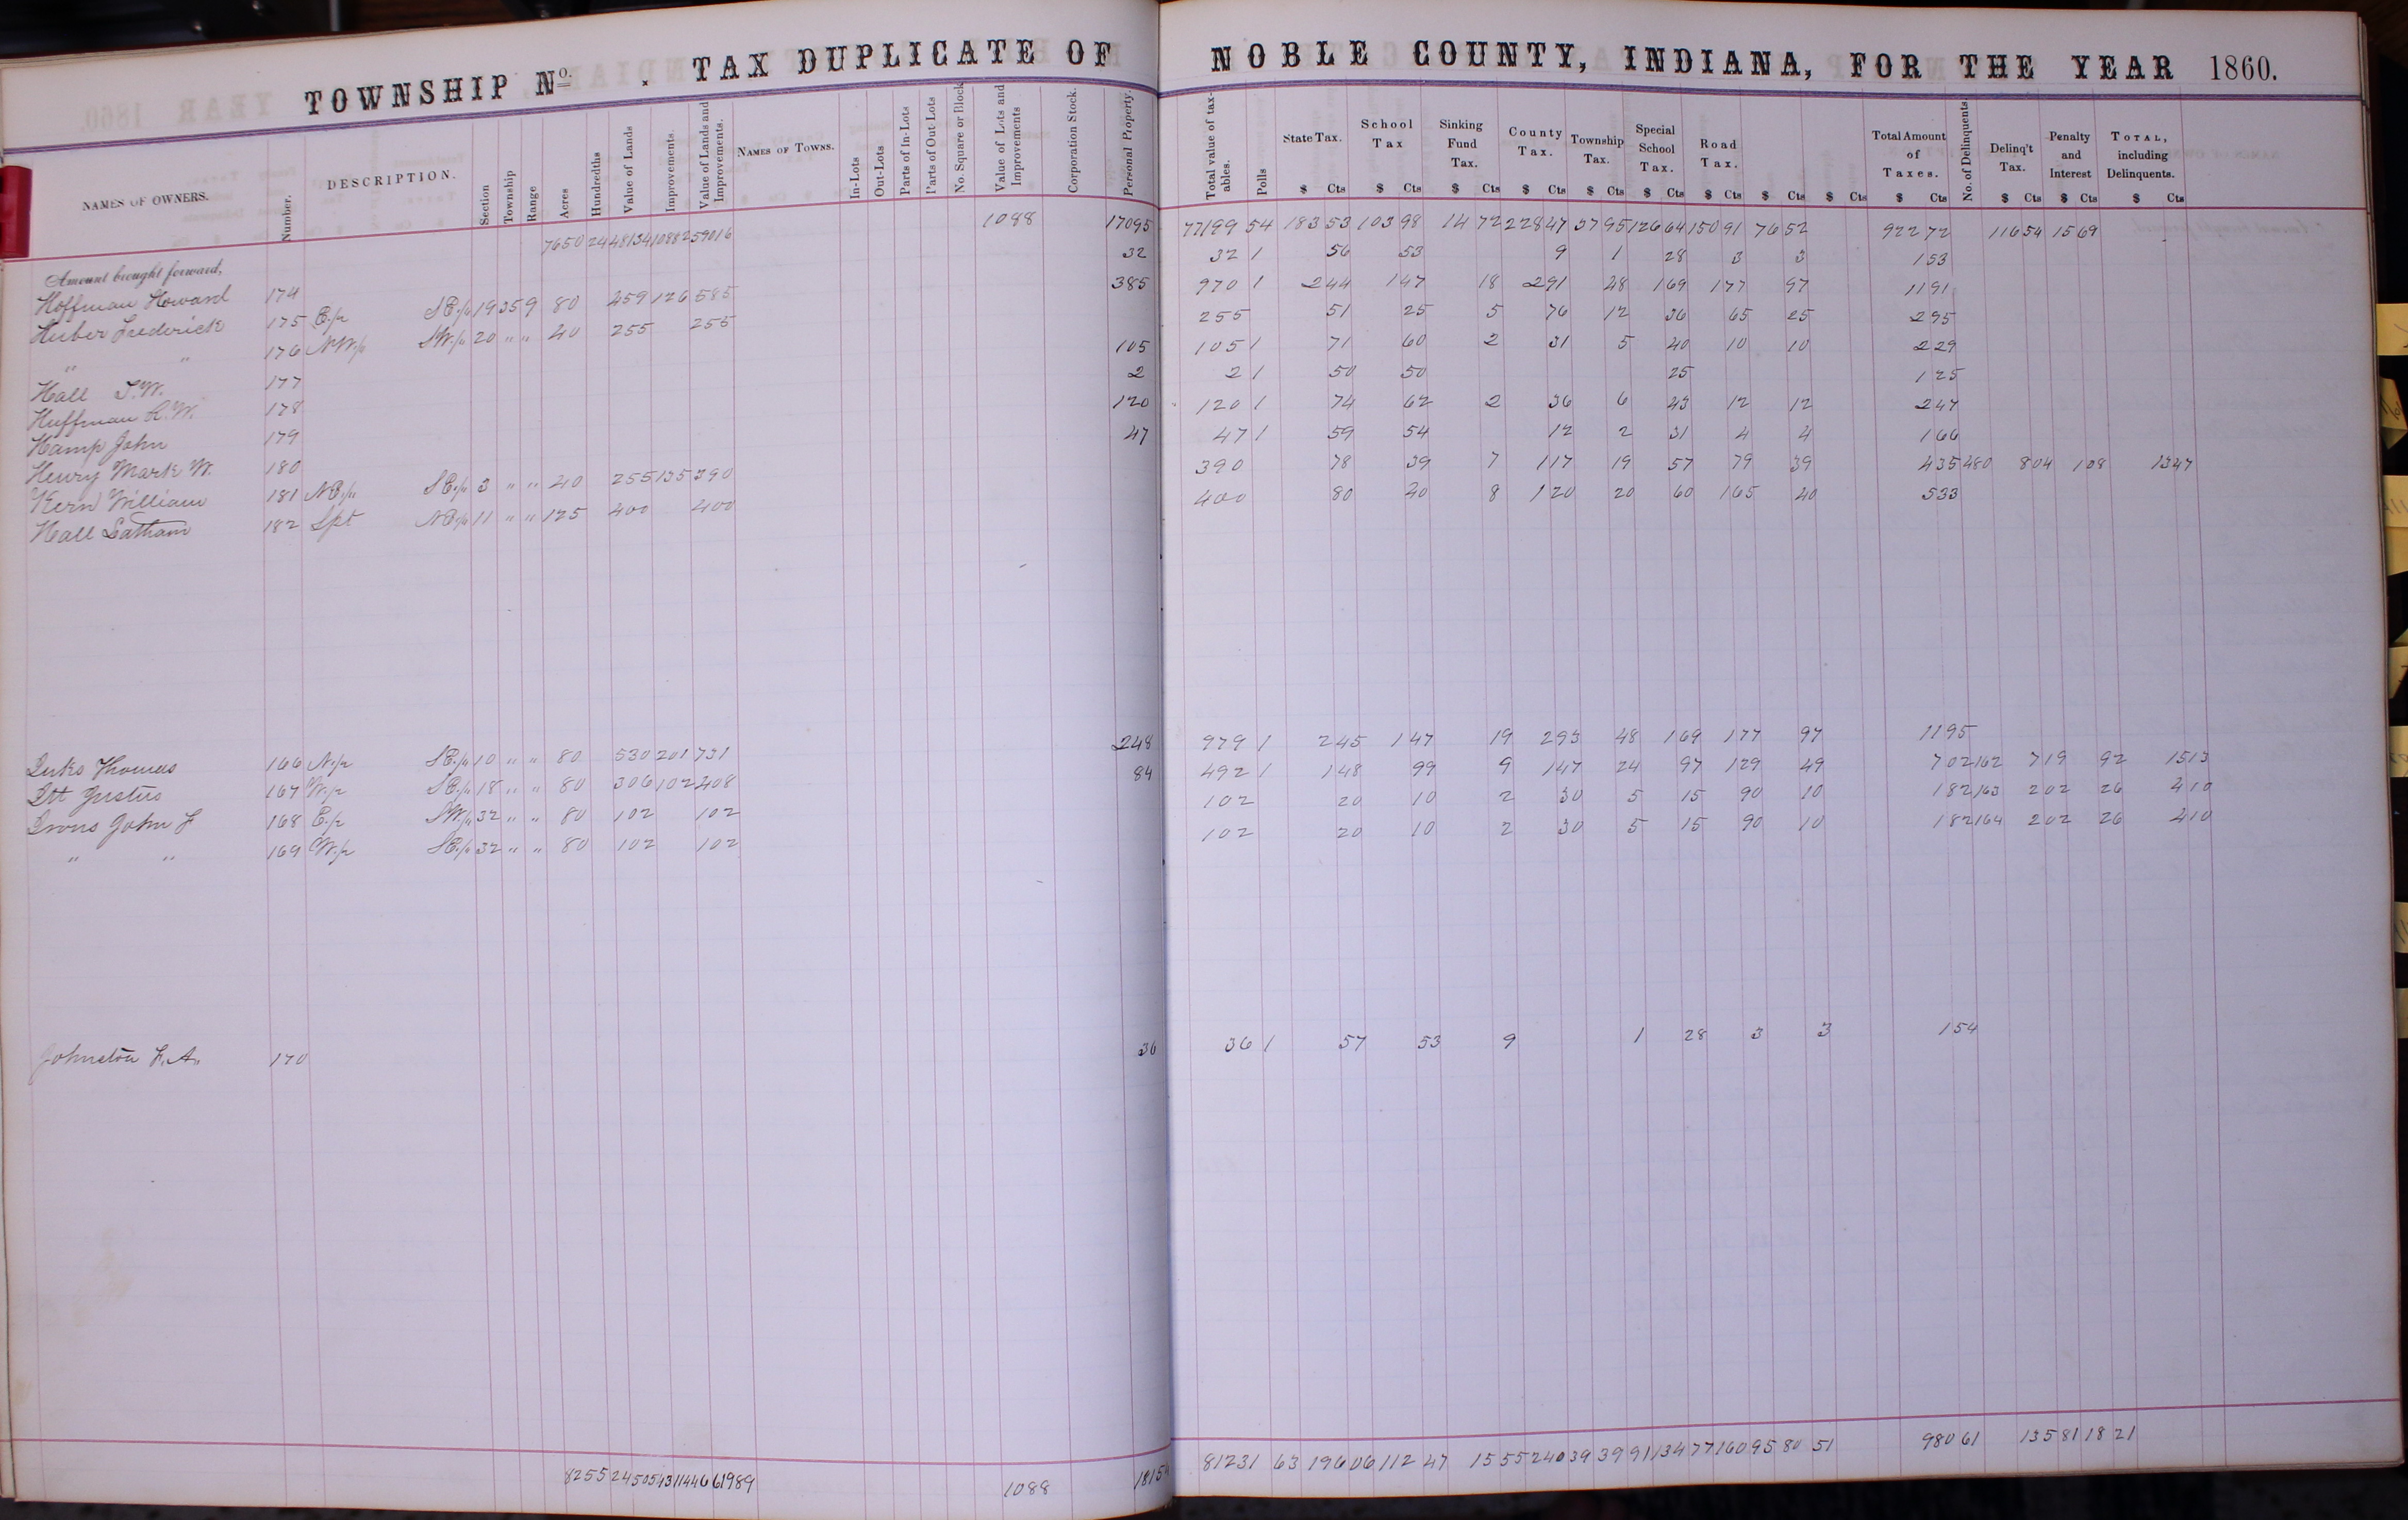 TOWNSHIP No. . TAX DUPLICATE OF NOBLE COUNTY, INDIANA, FOR THE YEAR 1860.
NAMES OF OWNERS. Number. DESCRIPTION. Section Township Range Acres Hundredths Value of Lands Improvements. Value of Lands and Improvements. NAMES OF TOWNS. In-Lots Out-Lots Parts of In-Lots Parts of Out-Lots No. Square or Block Value of Lots and Improvements Corporation Stock. Personal Property. Total value of tax-ables. Polls State Tax. School Tax Sinking Fund Tax. County Tax. Township Tax. Special School Tax. Road Tax. Total Amount of Taxes. No. of Delinquents. Delinq't Tax. Penalty and Interest TOTAL, including Delinquents.
$ Cts $ Cts $ Cts $ Cts $ Cts $ Cts $ Cts $ Cts $ Cts $ Cts $ Cts $ Cts $ Cts
Amount brought forward, 7650 24 48134 10882 59016 1088 17095 77199 54 183 53 103 98 14 72 228 47 37 95 126 64 150 91 76 52 922 72 116 54 15 69
Hoffman Howard 174 32 32 1 56 53 9 1 28 3 3 1 53
Huber Frederick 175 E./2 SE./4 19 35 9 80 459 126 585 385 970 1 2 44 1 47 18 2 91 48 1 69 1 77 97 11 91
" " 176 NW./4 SW./4 20 " " 40 255 255 255 51 25 5 76 12 36 65 25 2 95
Hall T.W. 177 105 105 1 71 60 2 31 5 40 10 10 2 29
Huffman R.W. 178 2 2 1 50 50 25 1 25
Hamp John 179 120 120 1 74 62 2 36 6 43 12 12 2 47
Henry Mark W. 180 47 47 1 59 54 12 2 31 4 4 1 66
Kern William 181 NE./4 SE./4 3 " " 40 255 135 390 390 78 39 7 1 17 19 57 79 39 4 35 480 8 04 1 08 13 47
Hall Latham 182 Spt NE./4 11 " " 125 400 400 400 80 40 8 1 20 20 60 1 65 40 5 33
Thomas 166 N./2 SE./4 10 " " 80 530 201 731 248 979 1 2 45 1 47 19 2 93 48 1 69 1 77 97 11 95
Justus 167 W./2 SE./4 18 " " 80 306 102 408 84 492 1 1 48 99 9 1 47 24 97 1 29 49 7 02 162 7 19 92 15 13
Irons John F 168 E./2 SW./4 32 " " 80 102 102 102 20 10 2 30 5 15 90 10 1 82 163 2 02 26 4 10
" " 169 W./2 SE./4 32 " " 80 102 102 102 20 10 2 30 5 15 90 10 1 82 164 2 02 26 4 10
Johnston F.A. 170 36 36 1 57 53 9 1 28 3 3 1 54
8255 24 50543 11446 61989 1088 18154 81231 63 196 06 112 47 15 55 240 39 39 91 134 77 160 95 80 51 980 61 135 81 18 21